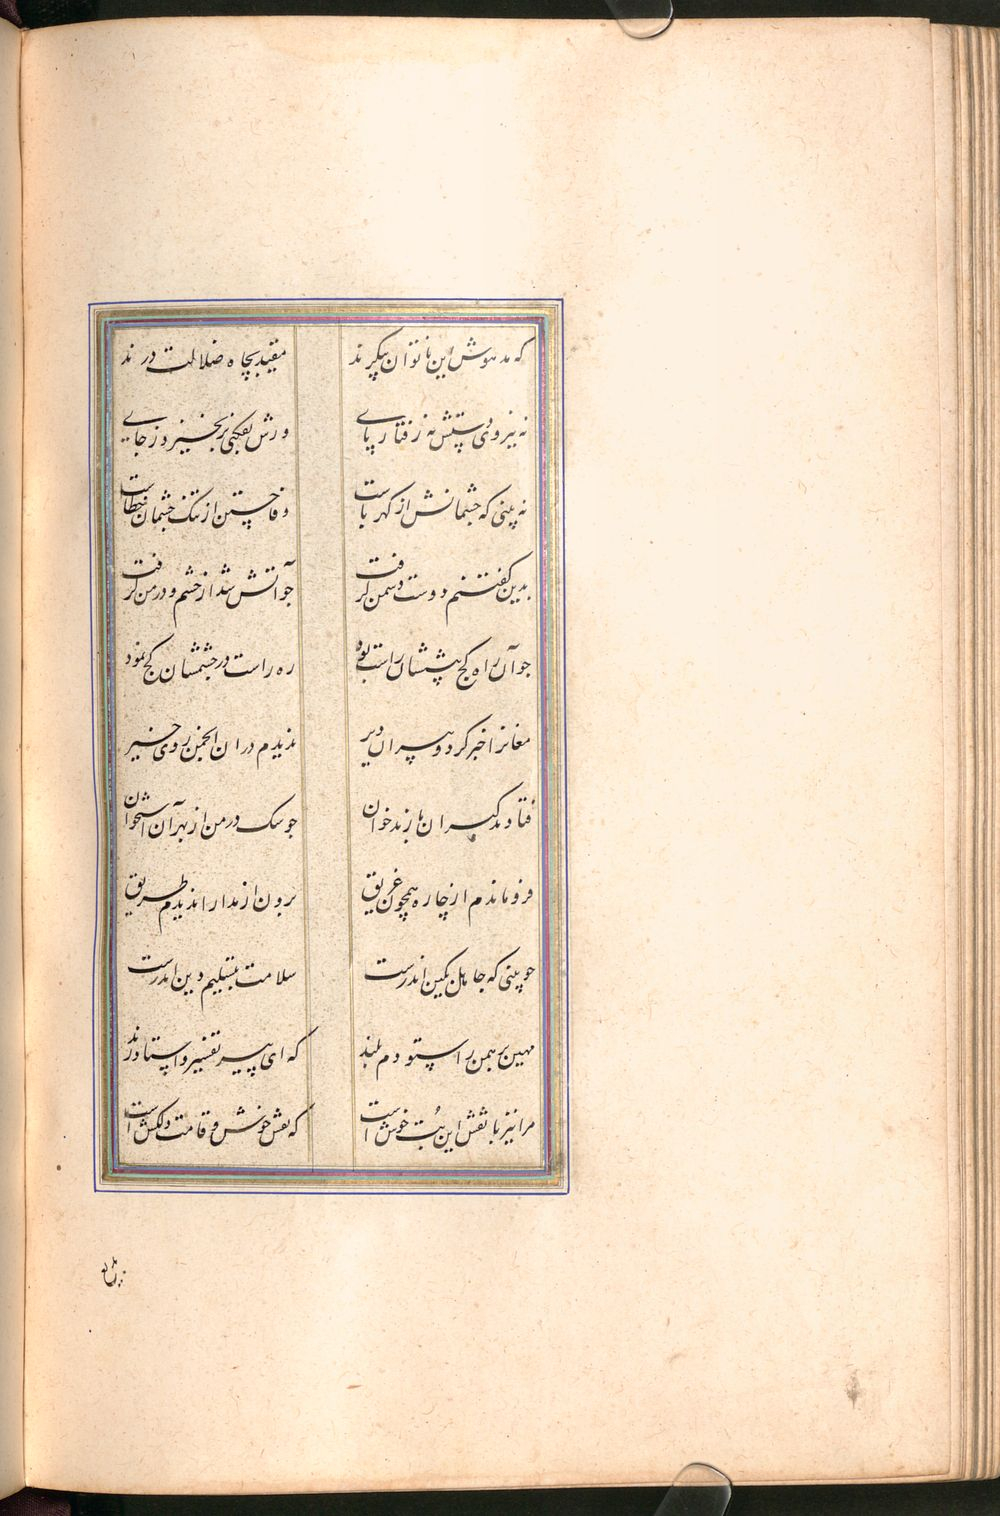 که مدهوش این ناتوان پیکرند
مقید بچاه ضلالت درند
نه نیروی دستش نه رفتار پای
ورش بفکنی بر نخیزد ز جای
نه بینی که چشمانش از کهرباست
وفا جستن از تنگ چشمان خطاست
بدین گفتنم دوست دشمن گرفت
چو آتش شد از خشم و در من گرفت
چو آن راه کج پیششان راست بود
ره راست در چشمشان کج نمود
مغانرا خبر کرد و پیران دیر
ندیدم در آن انجمن روی خیر
فتادند گبران پازند خوان
چو سگ در من از بهر آن استخوان
فرو ماندم از چاره همچون غریق
برون از مدارا ندیدم طریق
چو بینی که جاهل بکین اندرست
سلامت بتسلیم دین اندرست
مهین برهمن را ستودم بلند
که ای پیر تفسیر و استا و زند
مرا نیز با نقش این بت خوش است
که نقش خوش و قامت دلکش است